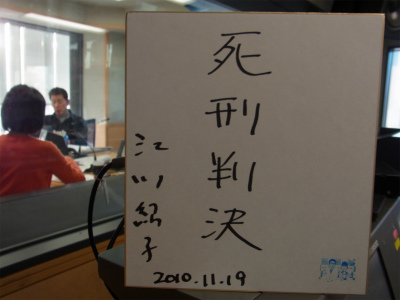 死刑判決
江川紹子
2010.11.19